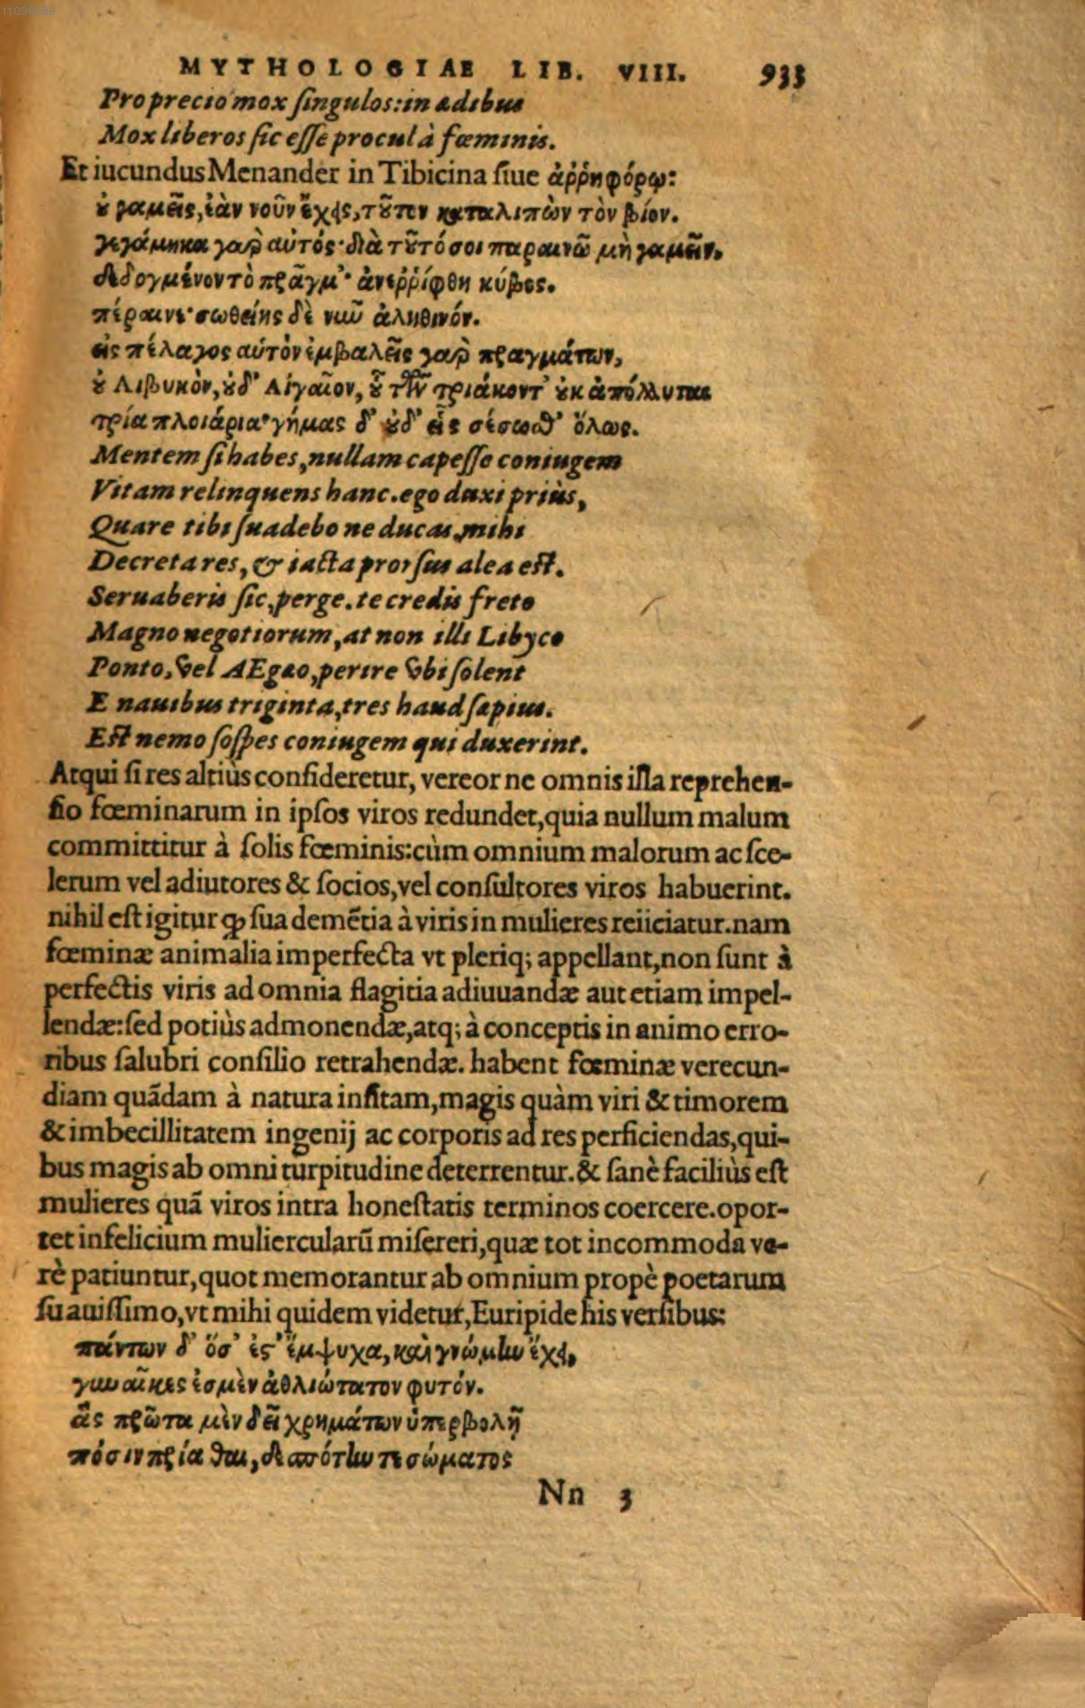 MYTHOLOGIAE LIB. VIII. 933
Pro precio mox singulos: in ædibus
Mox liberos sic esse procul à fœminis.
Et iucundus Menander in Tibicina siue ἀῤῥηφόρῳ:
ȣ γαμεῖς, ἐὰν νοῦν ἔχῃς, τȣ͂τον καταλιπὼν τὸν βίον.
γεγάμηκα γαρ̀ αὐτός· διὰ τȣ͂τό σοι παραινῶ μὴ γαμεῖν.
δεδογμένον τὸ πρᾶγμ᾽· ἀνεῤῥίφθη κύβος.
πέραινε· σωθείης δὲ νιῦ ἀληθινόν.
εἰς πέλαγος αὑτὸν ἐμβαλεῖς γαρ̀ πραγμάτων,
ȣ Λιβυκὸν, ȣδ᾽ Αἰγαῖον, ȣ͗ τῶν τριάκοντ᾽ ȣκ ἀπόλλυται
τρία πλοιάρια· γήμας δ᾽ ȣδ᾽ εἷς σέσωσθ᾽ ὅλως.
Mentem si habes, nullam capesse coniugem
Vitam relinquens hanc. ego duxi priùs,
Quare tibi suadebo ne ducas, mihi
Decreta res, & iacta prorsus alea est.
Seruaberis sic, perge. te credis freto
Magno negotiorum, at non illi Libyco
Ponto, vel AEgæo, perire vbi solent
E nauibus triginta, tres haud sæpius.
Est nemo sospes coniugem qui duxerint.
Atqui si res altiùs consideretur, vereor ne omnis illa reprehen-
sio fœminarum in ipsos viros redundet, quia nullum malum
committitur à solis fœminis: cùm omnium malorum ac sce-
lerum vel adiutores & socios, vel consultores viros habuerint.
nihil est igitur ꝙ sua demẽtia à viris in mulieres reiiciatur. nam
fœminæ animalia imperfecta vt pleriq; appellant, non sunt à
perfectis viris ad omnia flagitia adiuuandæ aut etiam impel-
lendæ: sed potiùs admonendæ, atq; à conceptis in animo erro-
ribus salubri consilio retrahendæ. habent fœminæ verecun-
diam quãdam à natura insitam, magis quàm viri & timorem
& imbecillitatem ingenij ac corporis ad res perficiendas, qui-
bus magis ab omni turpitudine deterrentur. & sanè faciliùs est
mulieres quã viros intra honestatis terminos coercere. opor-
tet infelicium muliercularũ misereri, quæ tot incommoda ve-
rè patiuntur, quot memorantur ab omnium propè poetarum
suauissimo, vt mihi quidem videtur, Euripide his versibus:
πάντων δ᾽ ὅσ᾽ ἐϛ᾽ ἔμψυχα, καὶ γνώμην ἔχει,
γυναῖκες ἐσμὲν ἀθλιώτατον φυτόν.
ἃς πρῶτα μὲν δεῖ χρημάτων ὑπερβολῇ
πόσιν πρίαθαι, δεσπότην τε σώματος
Nn 3